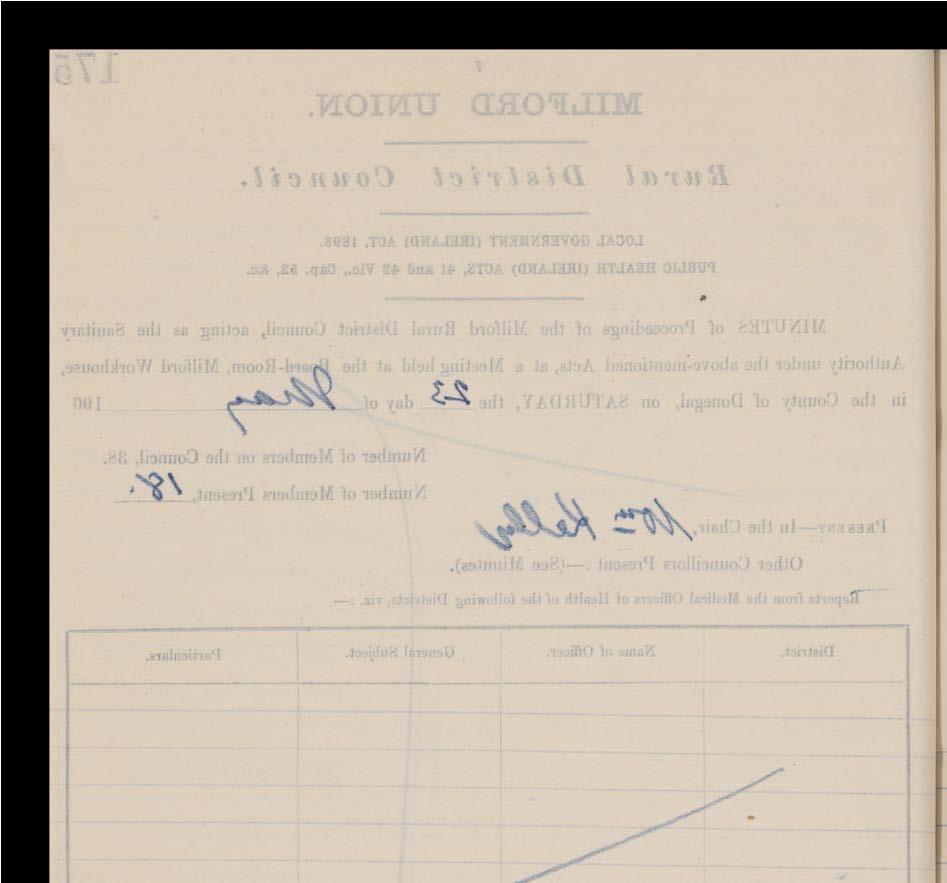 175
MILFORD UNION.
Rural District Council.
LOCAL GOVERNMENT (IRELAND) ACT, 1898.
PUBLIC HEALTH (IRELAND) ACTS, 41 and 42 Vic., Cap. 52, &c.
MINUTES of Proceedings of the Milford Rural District Council, acting as the Sanitary
Authority under the above-mentioned Acts, at a Meeting held at the Board-Room, Milford Workhouse,
in the County of Donegal, on SATURDAY, the 23 day of May 190
Number of Members on the Council, 38.
Number of Members Present, 18.
PRESENT—In the Chair, Wm Kelly
Other Councillors Present :—(See Minutes).
Reports from the Medical Officers of Health of the following Districts, viz. :—
District. Name of Officer. General Subject. Particulars.